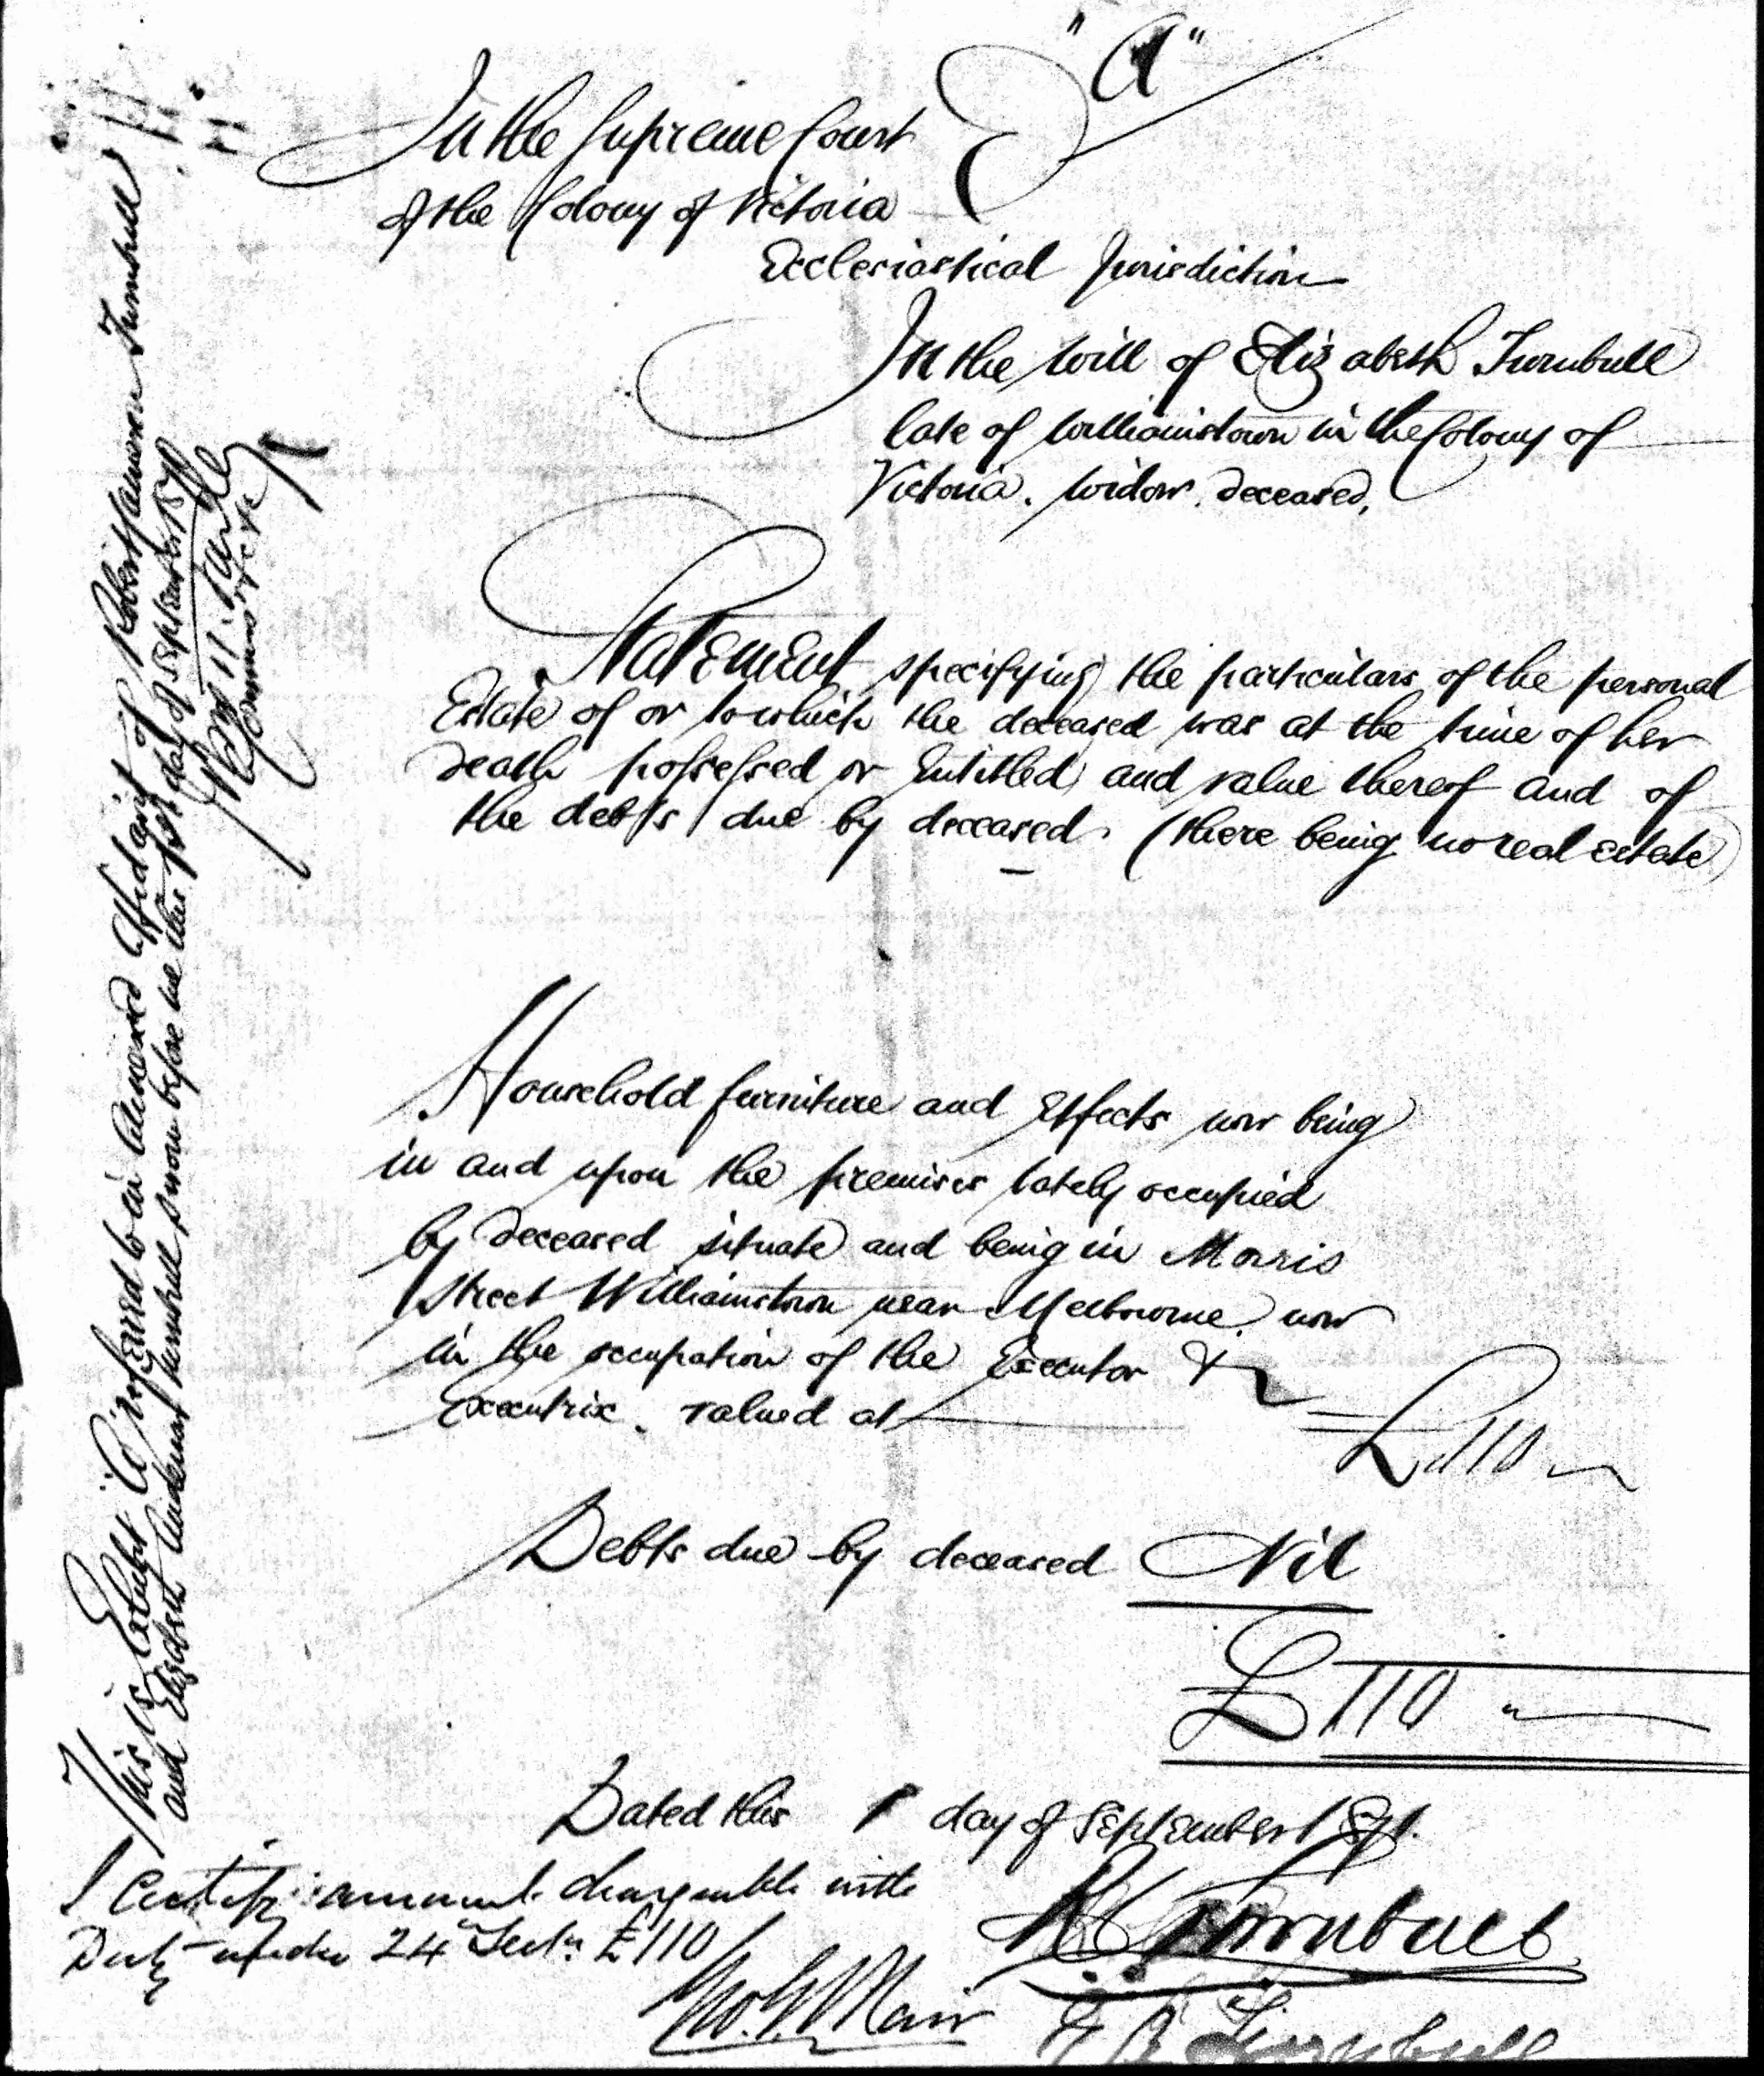 "A"
In the Supreme Court
of the Colony of Victoria
Ecclesiastical Jurisdiction
In the will of Elizabeth Turnbull
late of Williamstown in the Colony of
Victoria. Widow. deceased.
Statement specifying the particulars of the personal
Estate of or to which the deceased was at the time of her
death possessed or Entitled and value thereof and of
the debts due by deceased. (there being no real estate)
Household furniture and Effects now being
in and upon the premises lately occupied
by deceased situate and being in Morris
Street Williamstown near Melbourne now
in the occupation of the Executor &
Executrix. valued at £110
Debts due by deceased Nil
£110
Dated this 1 day of September
I Certify amount chargeable with
Duty under 24 Sect: £110
Turnbull
Turnbull
This is Exhibit A referred to in annexed Affidavit of Robert Turnbull
and Elizabeth Turnbull sworn before me this 1st day of September